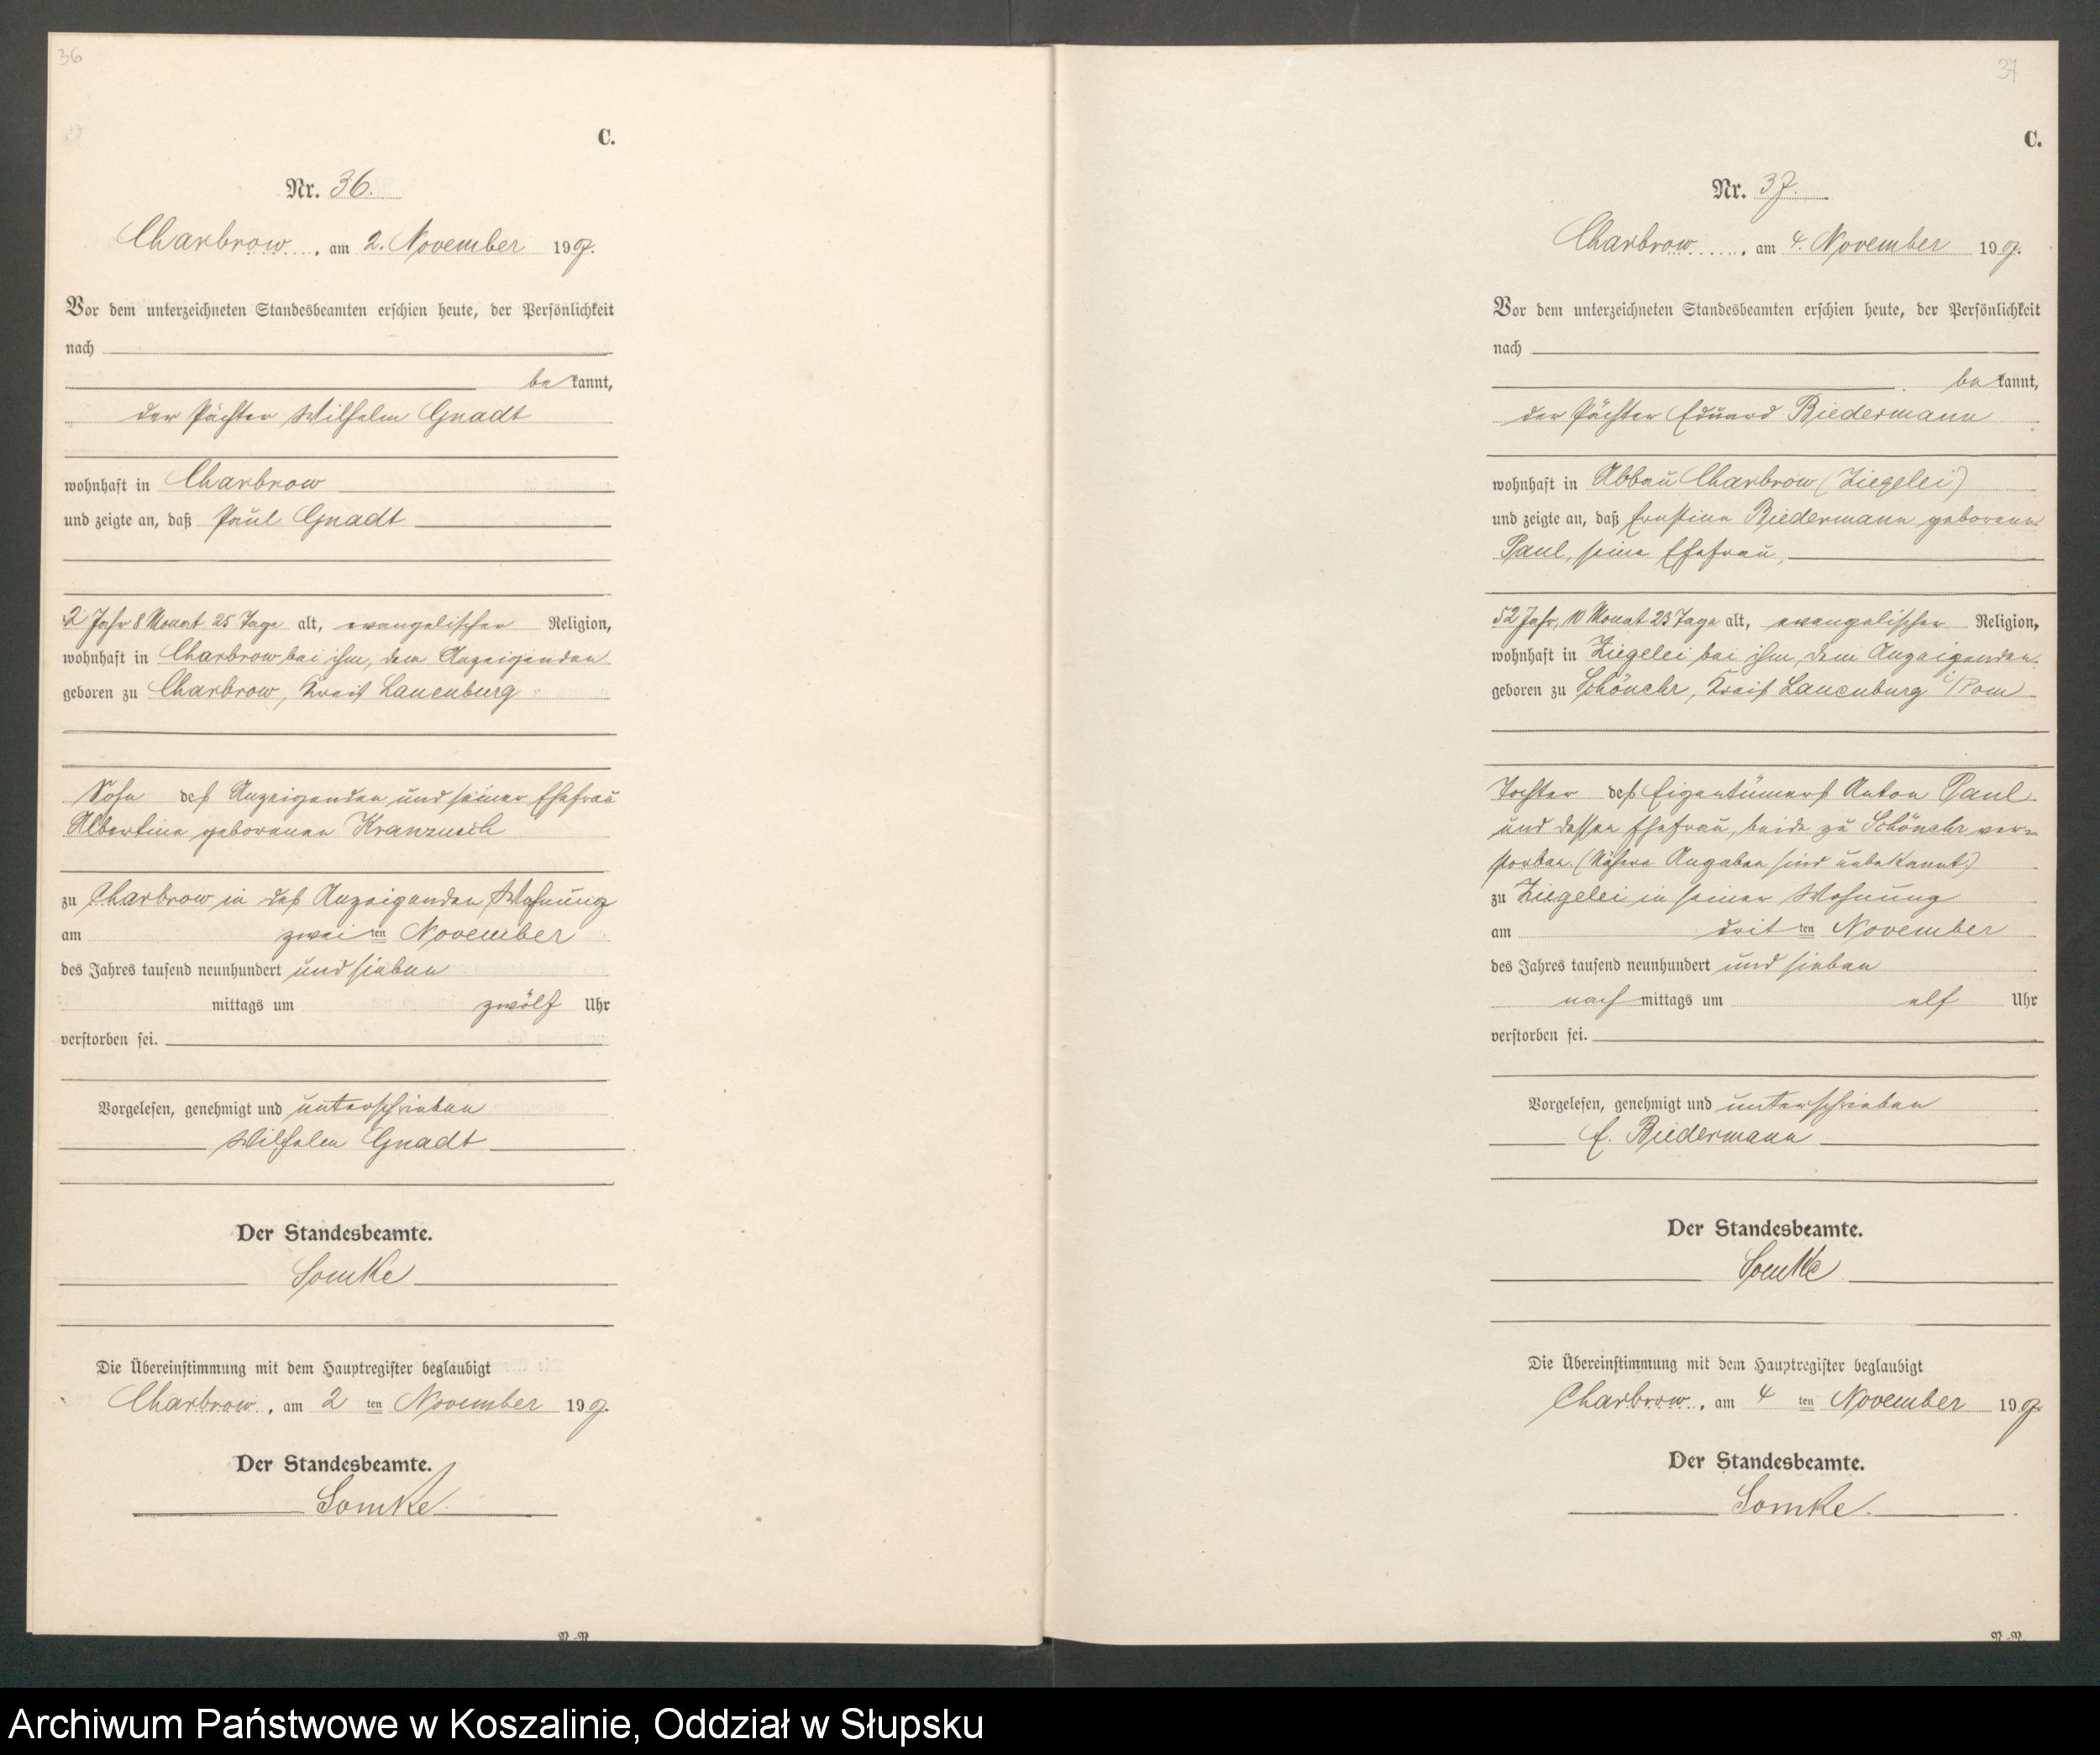 36
C.
Nr. 36.
Charbrow, am 2. November 1907.
Vor dem unterzeichneten Standesbeamten erschien heute, der Persönlichkeit
nach
bekannt,
der Pächter Wilhelm Gnadt
wohnhaft in Charbrow
und zeigte an, daß Paul Gnadt
2 Jahr 8 Monat 25 Tage alt, evangelischer Religion,
wohnhaft in Charbrow bei ihm, dem Anzeigenden
geboren zu Charbrow, Kreis Lauenburg
Sohn des Anzeigenden und seiner Ehefrau
Albertine geborenen Kranzusch
zu Charbrow in des Anzeigenden Wohnung
am zweiten November
des Jahres tausend neunhundert und sieben
mittags um zwölf Uhr
verstorben sei.
Vorgelesen, genehmigt und unterschrieben
Wilhelm Gnadt
Der Standesbeamte.
Somke
Die Übereinstimmung mit dem Hauptregister beglaubigt
Charbrow, am 2 ten November 1907.
Der Standesbeamte.
Somke.
37
C.
Nr. 37.
Charbrow, am 4. November 1907.
Vor dem unterzeichneten Standesbeamten erschien heute, der Persönlichkeit
nach
bekannt,
der Pächter Eduard Biedermann
wohnhaft in Abbau Charbrow (Ziegelei)
und zeigte an, daß Ernstine Biedermann geborene
Paul, seine Ehefrau,
52 Jahr, 10 Monat 23 Tage alt, evangelischer Religion,
wohnhaft in Ziegelei bei ihm, dem Anzeigenden.
geboren zu Schönehr, Kreis Lauenburg i/Pom
Tochter des Eigentümers Anton Paul
und dessen Ehefrau, beide zu Schönehr ver-
storben. (Nähere Angaben sind unbekannt.)
zu Ziegelei in seiner Wohnung
am dritten November
des Jahres tausend neunhundert und sieben
nachmittags um elf Uhr
verstorben sei.
Vorgelesen, genehmigt und unterschrieben
E. Biedermann
Der Standesbeamte.
Somke
Die Übereinstimmung mit dem Hauptregister beglaubigt
Charbrow, am 4 ten November 1907
Der Standesbeamte.
Somke.
Archiwum Państwowe w Koszalinie, Oddział w Słupsku